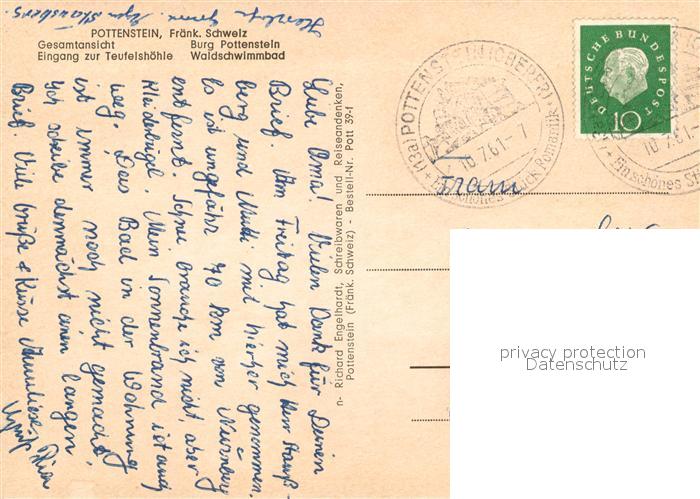 POTTENSTEIN, Fränk. Schweiz
Gesamtansicht Burg Pottenstein
Eingang zur Teufelshöhle Waldschwimmbad
Liebe Oma! Vielen Dank für Deinen
Brief. Am Freitag hat mich Herr
berg und Mutti mit hierher genommen.
Es ist ungefähr 70 km von Nürnberg
entfernt. Schuhe brauche ich nicht, aber
Kleiderbügel. Mein Sonnenbrand ist auch
weg. Das Bad in der Wohnung
ist immer noch nicht gemacht.
Ich schreibe demnächst einen langen
Brief. Viele Grüße & Küsse Anneliese
n- Richard Engelhardt, Schreibwaren und Reiseandenken,
Pottenstein (Fränk. Schweiz) - Bestell-Nr. Pott 39-f
(13a) POTTENSTEIN (OBERFR)
10.7.61-7
DEUTSCHE BUNDESPOST
10
10.7.61
Ein schönes St
Frau
privacy protection
Datenschutz